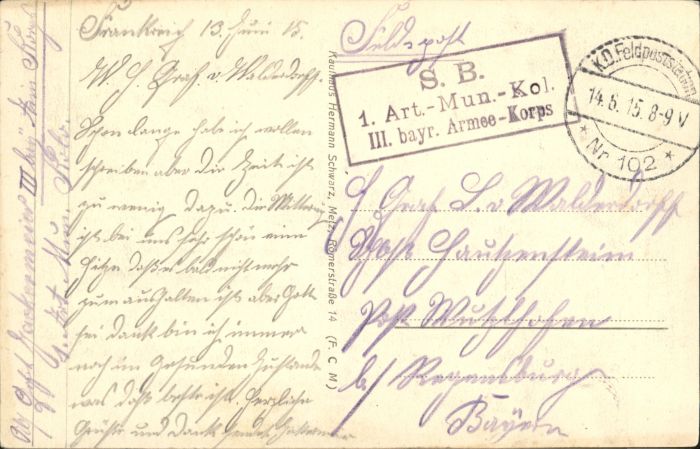 Frankreich 13 Juni 15.
W. H. Graf v. Walderdorff.
Schon lange hab ich wollen
schreiben aber die Zeit ist
zu wenig dazu. die Witterung
ist bei uns sehr schön eine
Hitze daß es bald nicht mehr
zum aushalten ist aber Gott
sei dank bin ich immer
noch im Gesunden Zustande
was daß beste ist. Herzliche
Grüße und Dank sendet
Feldpost
S. B.
1. Art.-Mun.-Kol.
III. bayr. Armee-Korps
K.D. Feldpoststation
14.6.15. 8-9 V
* Nr 102 *
Graf v Walderdorff
Schloß Hauzenstein
Post Wutzlhofen
b/ Regensburg
Bayern
Kaufhaus Hermann Schwarz, Metz, Römerstraße 14 (F C M)
III bay
Art. Mun. Kolo.